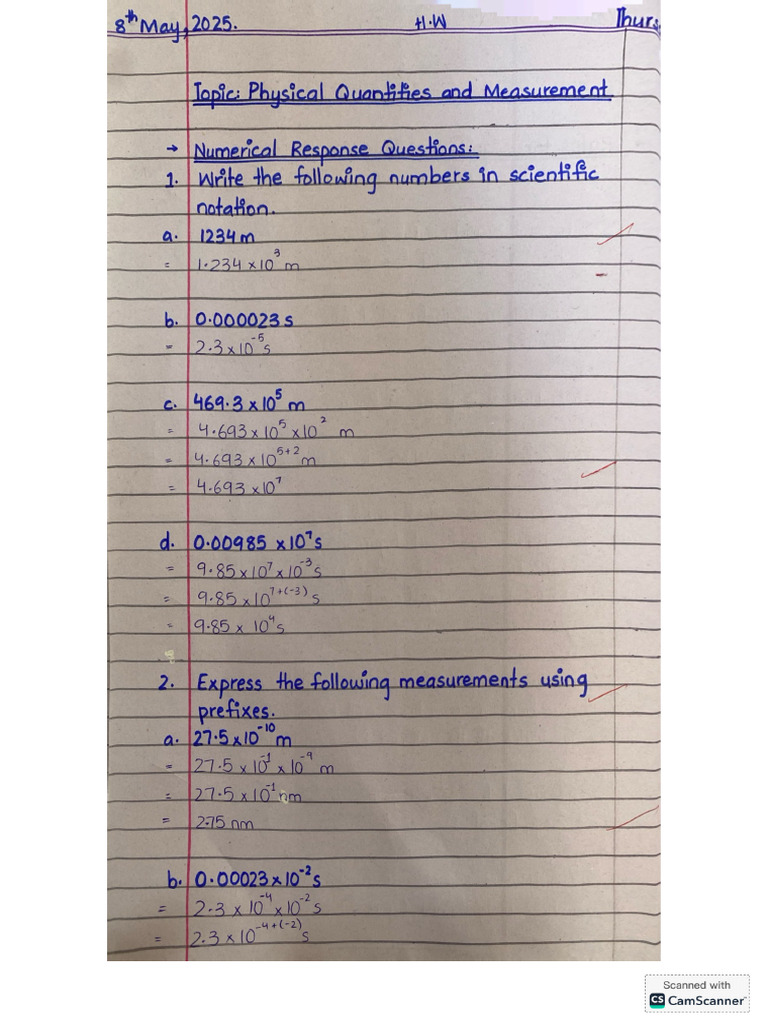 8th May, 2025. H.W Thurs
Topic: Physical Quantities and Measurement
→ Numerical Response Questions:
1. Write the following numbers in scientific
notation.
a. 1234 m
= 1.234 × 10³ m
b. 0.000023 s
= 2.3 × 10⁻⁵ s
c. 469.3 × 10⁵ m
= 4.693 × 10⁵ × 10² m
= 4.693 × 10⁵⁺² m
= 4.693 × 10⁷
d. 0.00985 × 10⁷ s
= 9.85 × 10⁷ × 10⁻³ s
= 9.85 × 10⁷⁺⁽⁻³⁾ s
= 9.85 × 10⁴ s
2. Express the following measurements using
prefixes.
a. 27.5 × 10⁻¹⁰ m
= 27.5 × 10⁻¹ × 10⁻⁹ m
= 27.5 × 10⁻¹ nm
= 2.75 nm
b. 0.00023 × 10⁻² s
= 2.3 × 10⁻⁴ × 10⁻² s
= 2.3 × 10⁻⁴⁺⁽⁻²⁾ s
Scanned with
CS CamScanner